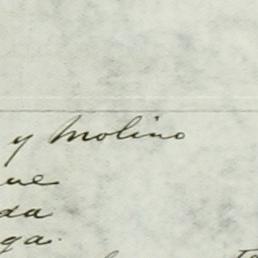 y Molino
que
da
ga.